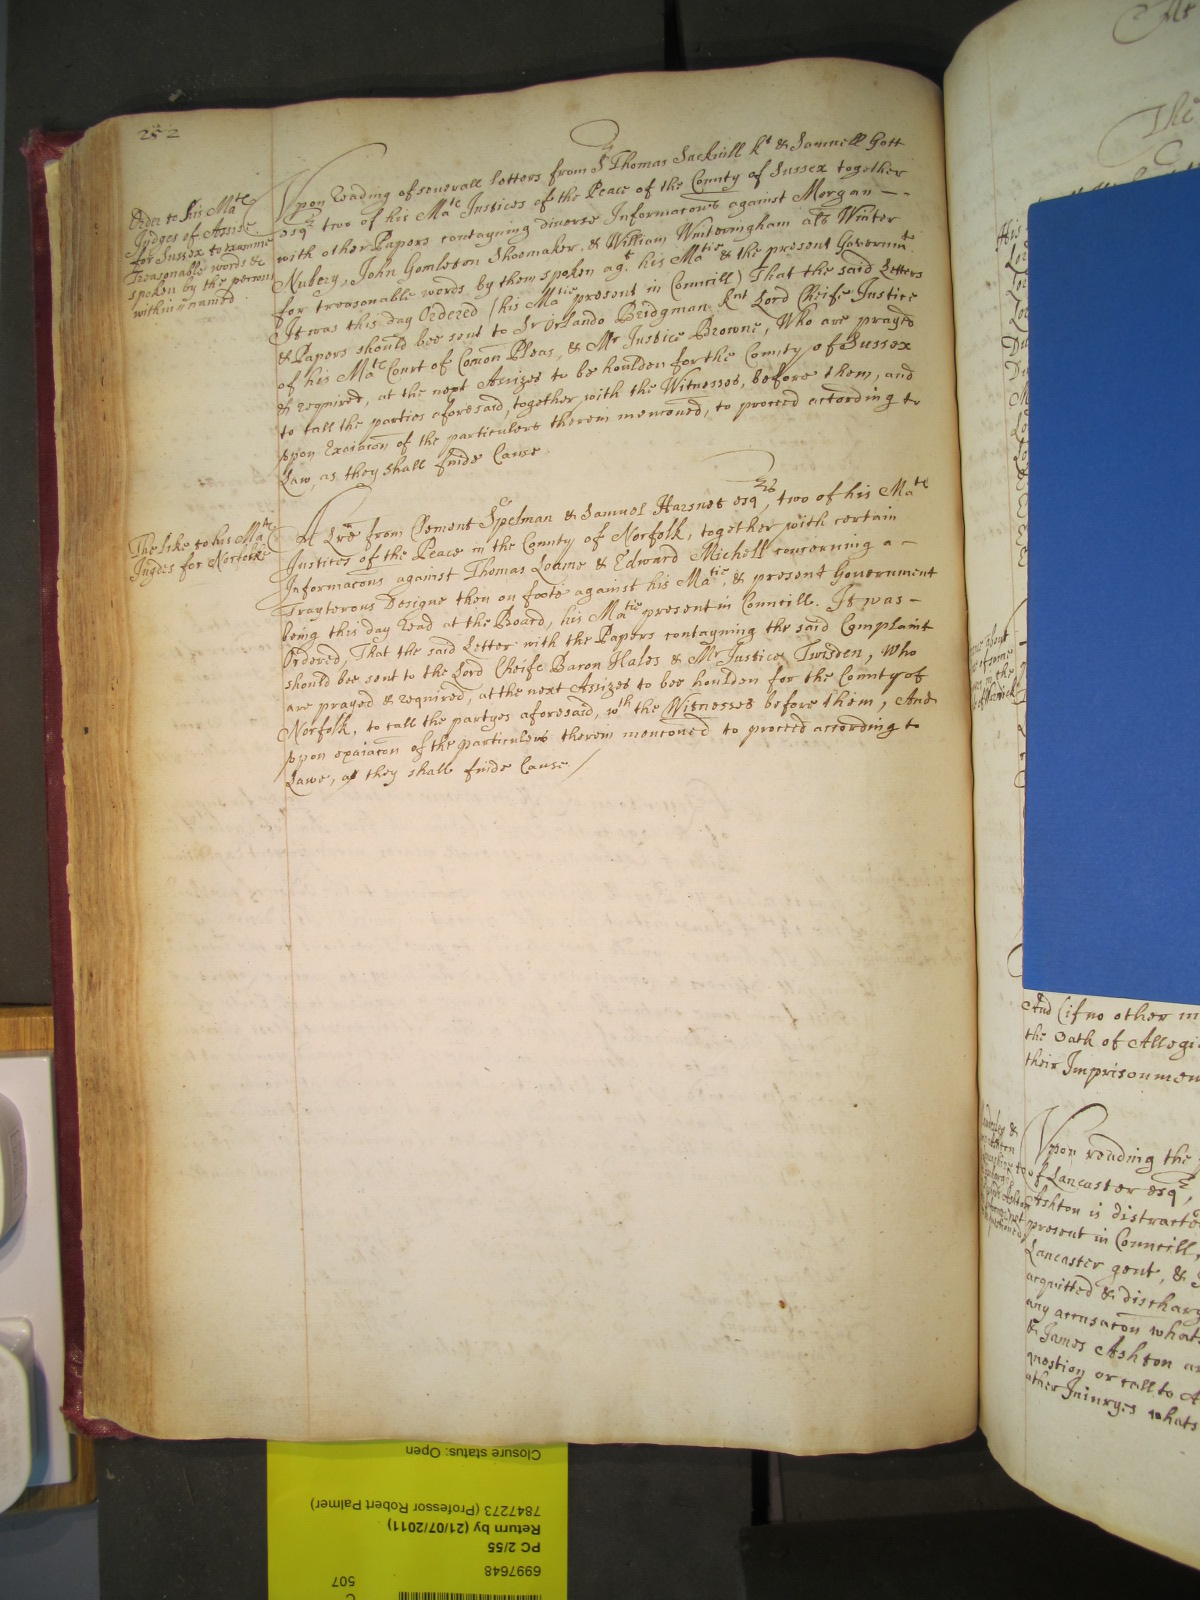 252
Order to his Ma^tes
Judges of Assise
for Sussex to examine
Treasonable words &c
spoken by the persons
within named
Vpon Reading of seuerall Letters from S^r Thomas Sackuill K^t & Samuell Gott
esq^r two of his Ma^ts Justices of the Peace of the County of Sussex together
with other Papers contayning diuerse Informacons against Morgan —
Nubery, John Gomleton Shoemaker, & William Winteringham als Winter
for treasonable words by them spoken ag^t his Ma^tie & the present Governm^t
It was this day Ordered (his Ma^tie present in Councill) That the said Letters
& Papers should bee sent to Sr Orlando Bridgman Knt Lord Cheife Justice
of his Ma^ts Court of Comon Pleas, & M^r Justice Browne, Who are prayed
& required, at the next Assizes to be houlden for the County of Sussex
to call the parties aforesaid, together with the Witnesses, before them, and
vpon Exaiacon of the particulers therein menconed, to proceed according to
Law, as they shall finde Cause
The like to his Ma^ts
Jugdes for Norfolke
A Lre from Clement Spelman & Samuel Harsnet esq^rs, two of his Ma^tes
Justices of the Peace in the County of Norfolk, together with certain
Informacons against Thomas Leame & Edward Michell concerning a —
Trayterous Designe then on foote against his Ma^tie, & present Government
being this day Read at the Board, his Ma^tie present in Councill. It was —
Ordered, That the said Letter with the Papers contayning the said Complaint
should bee sent to the Lord Cheife Baron Hales & M^r Justice Twisden, Who
are prayed & required, at the next Assizes to bee houlden for the County of
Norfolk, to call the partyes aforesaid, w^th the Witnesses before them, And
vpon exaiacon of the particulers therein menconed to proceed according to
Lawe, as they shall finde Cause /
The
And (if no other m
the Oath of Allegi
their Imprisonmen
Vpon reading the
of Lancaster esq^r,
Ashton is distracte
present in Councill,
Lancaster gent, &
acquitted & discharg
any accusacon what
& James Ashton a
question or call to A
other Iniuryes whats
Closure status: Open
7847273 (Professor Robert Palmer)
Return by (21/07/2011)
PC 2/55
6997648
507